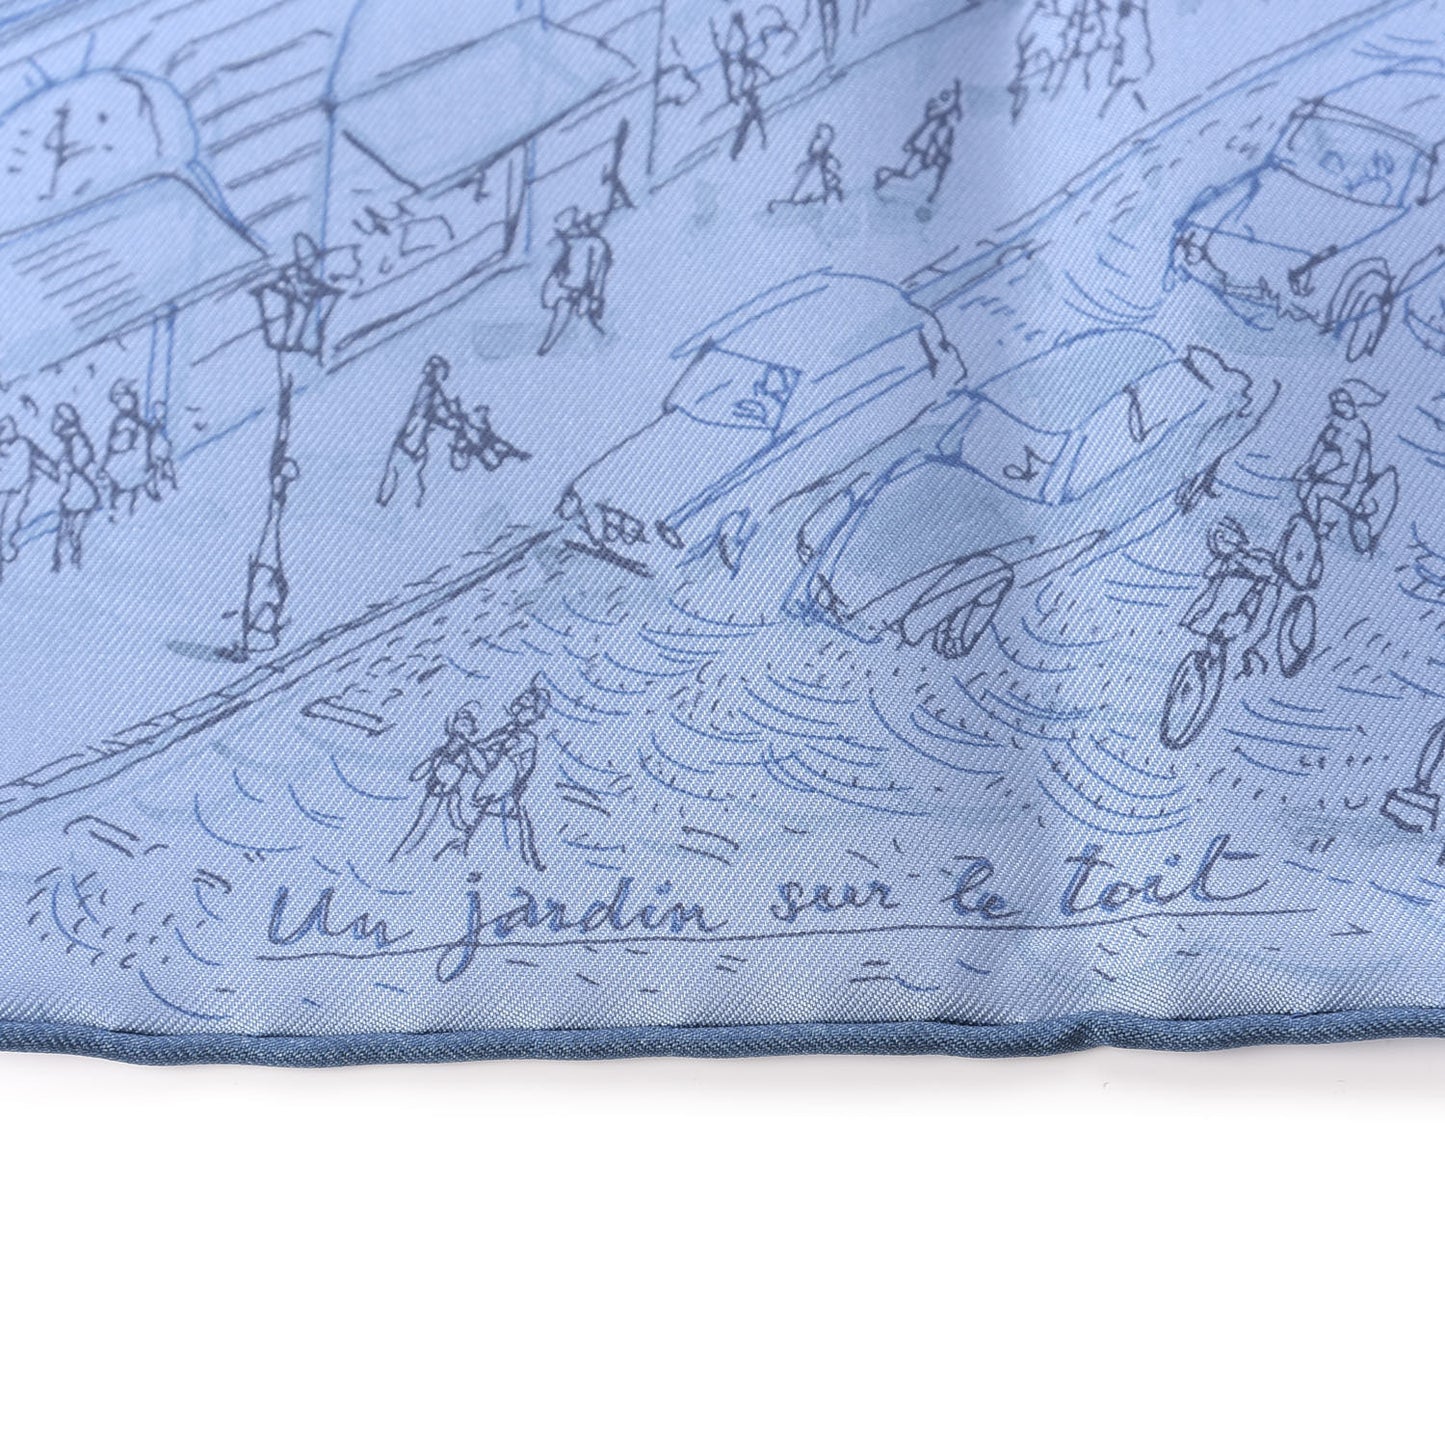 "Un jardin sur le toit"